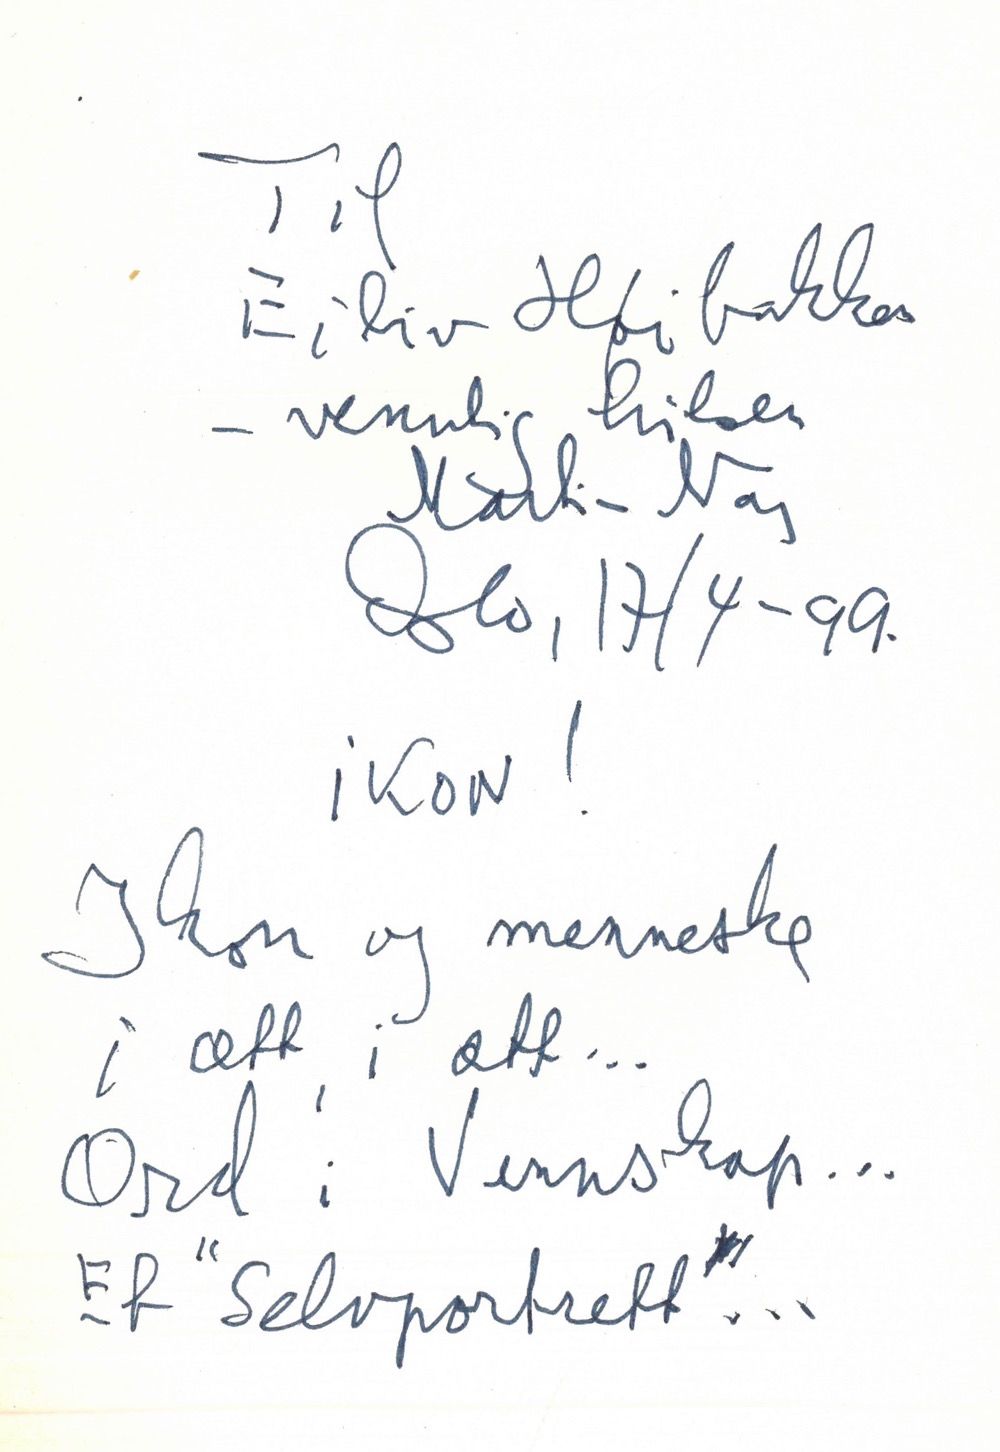 Til
Eiliv Høibakken
– vennlig hilsen
Martin Nag
Oslo, 17/4-99.
iKON!
Ikon og menneske
i ætt, i ætt...
Ord i Vennskap...
Et "Selvportrett"...